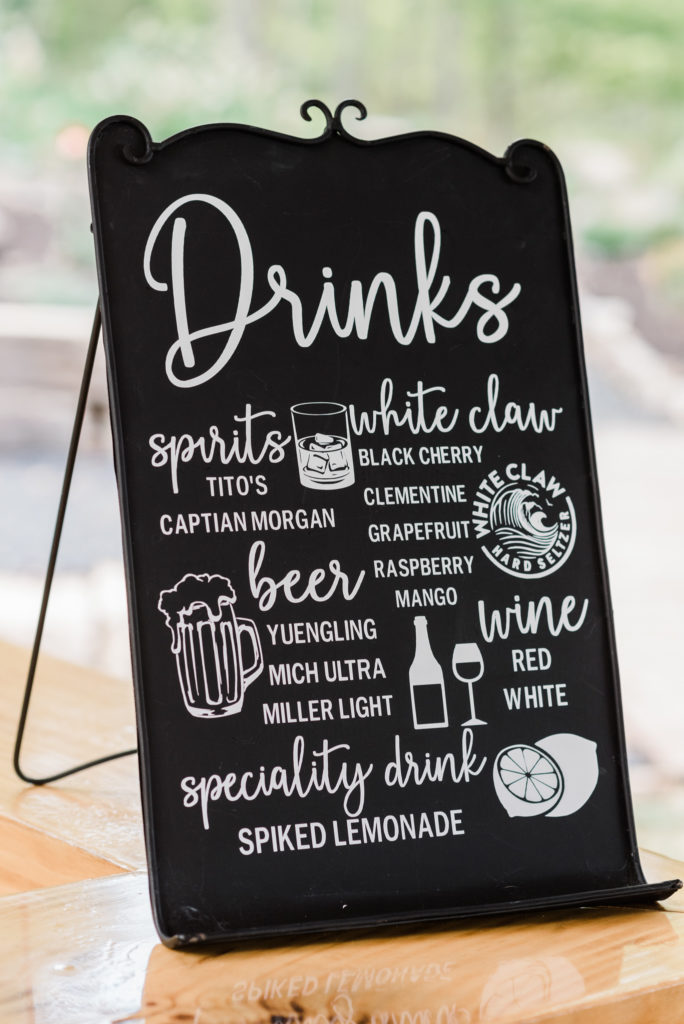 Drinks
spirits
TITO'S
CAPTIAN MORGAN
white claw
BLACK CHERRY
CLEMENTINE
GRAPEFRUIT
RASPBERRY
MANGO
WHITE CLAW
HARD SELTZER
beer
YUENGLING
MICH ULTRA
MILLER LIGHT
wine
RED
WHITE
speciality drink
SPIKED LEMONADE